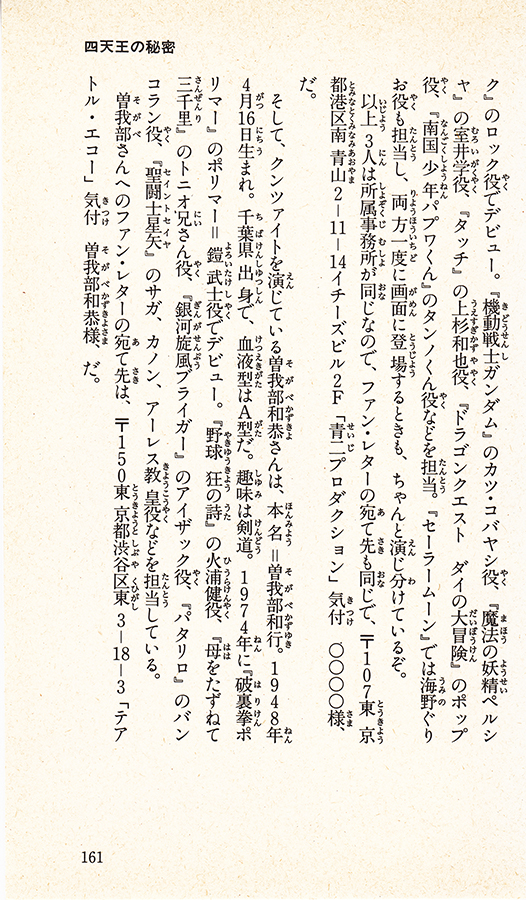 四天王の秘密
ク』のロック役でデビュー。『機動戦士ガンダム』のカツ・コバヤシ役、『魔法の妖精ペルシ
ャ』の室井学役、『タッチ』の上杉和也役、『ドラゴンクエスト ダイの大冒険』のポップ
役、『南国少年パプワくん』のタンノくん役などを担当。『セーラームーン』では海野ぐり
お役も担当し、両方一度に画面に登場するときも、ちゃんと演じ分けているぞ。
以上3人は所属事務所が同じなので、ファン・レターの宛て先も同じで、〒107東京
都港区南青山2-11-14イチーズビル2F「青二プロダクション」気付 〇〇〇〇様、
だ。
そして、クンツァイトを演じている曽我部和恭さんは、本名=曽我部和行。1948年
4月16日生まれ。千葉県出身で、血液型はA型だ。趣味は剣道。1974年に『破裏拳ポ
リマー』のポリマー=鎧武士役でデビュー。『野球狂の詩』の火浦健役、『母をたずねて
三千里』のトニオ兄さん役、『銀河旋風ブライガー』のアイザック役、『パタリロ』のバン
コラン役、『聖闘士星矢』のサガ、カノン、アーレス教皇役などを担当している。
曽我部さんへのファン・レターの宛て先は、〒150東京都渋谷区東3-18-3「テア
トル・エコー」気付 曽我部和恭様、だ。
161